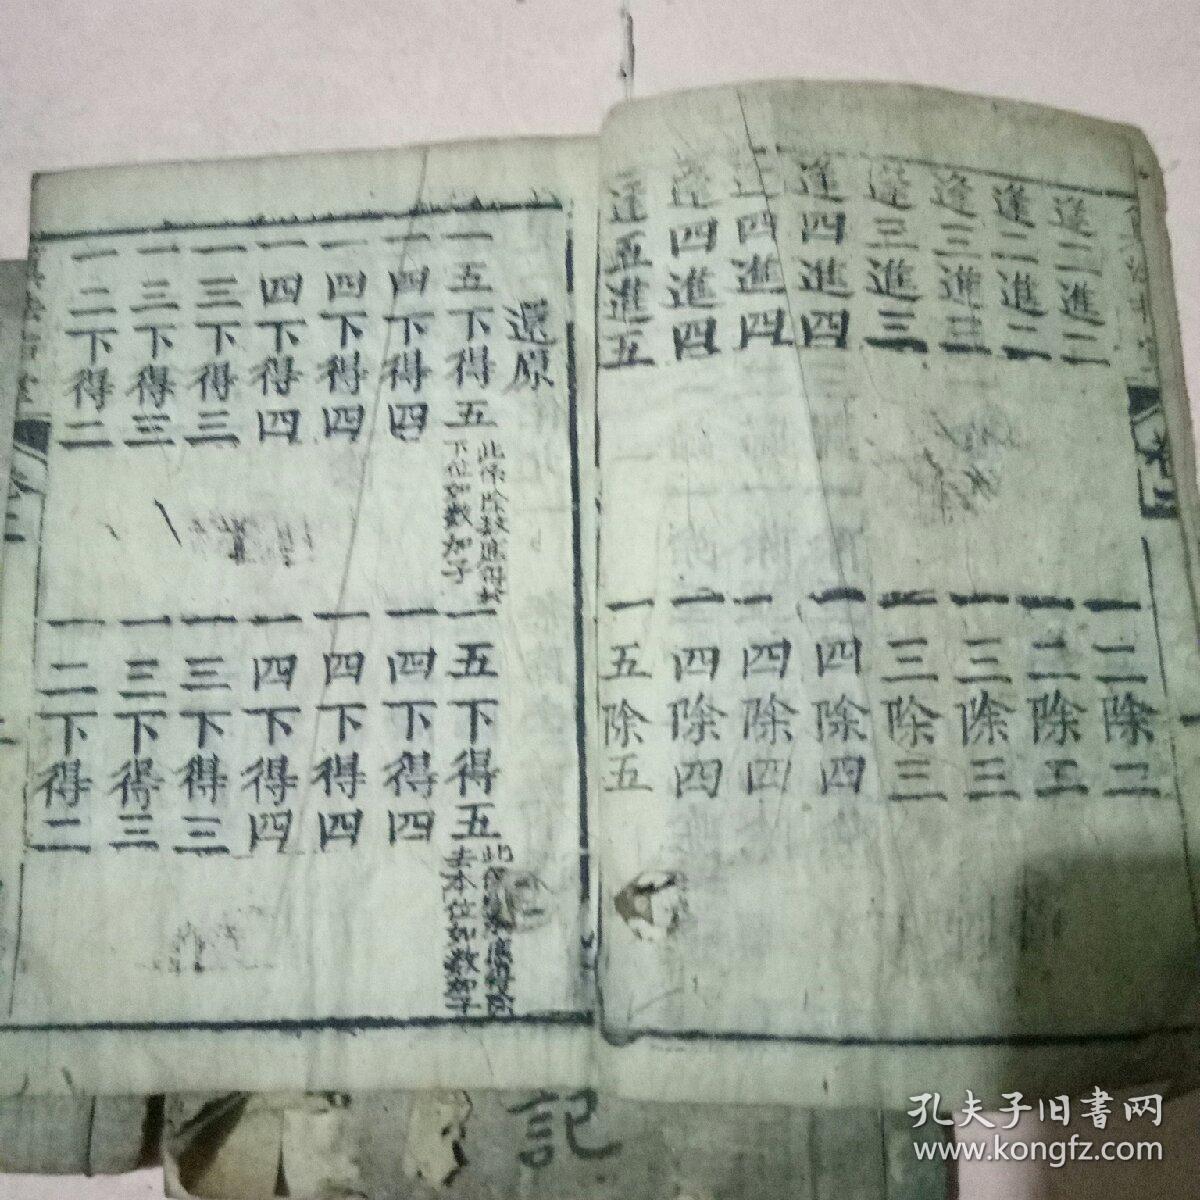 逢二進二
逢二進二
逢三進三
逢三進三
逢四進四
逢四進四
逢四進四
逢五進五
一二除二
一二除二
一三除三
一三除三
一四除四
一四除四
一四除四
一五除五
還原
一五下得五
一四下得四
一四下得四
一四下得四
一三下得三
一三下得三
一二下得二
一五下得五
一四下得四
一四下得四
一四下得四
一三下得三
一三下得三
一二下得二
記
孔夫子旧書网
www.kongfz.com